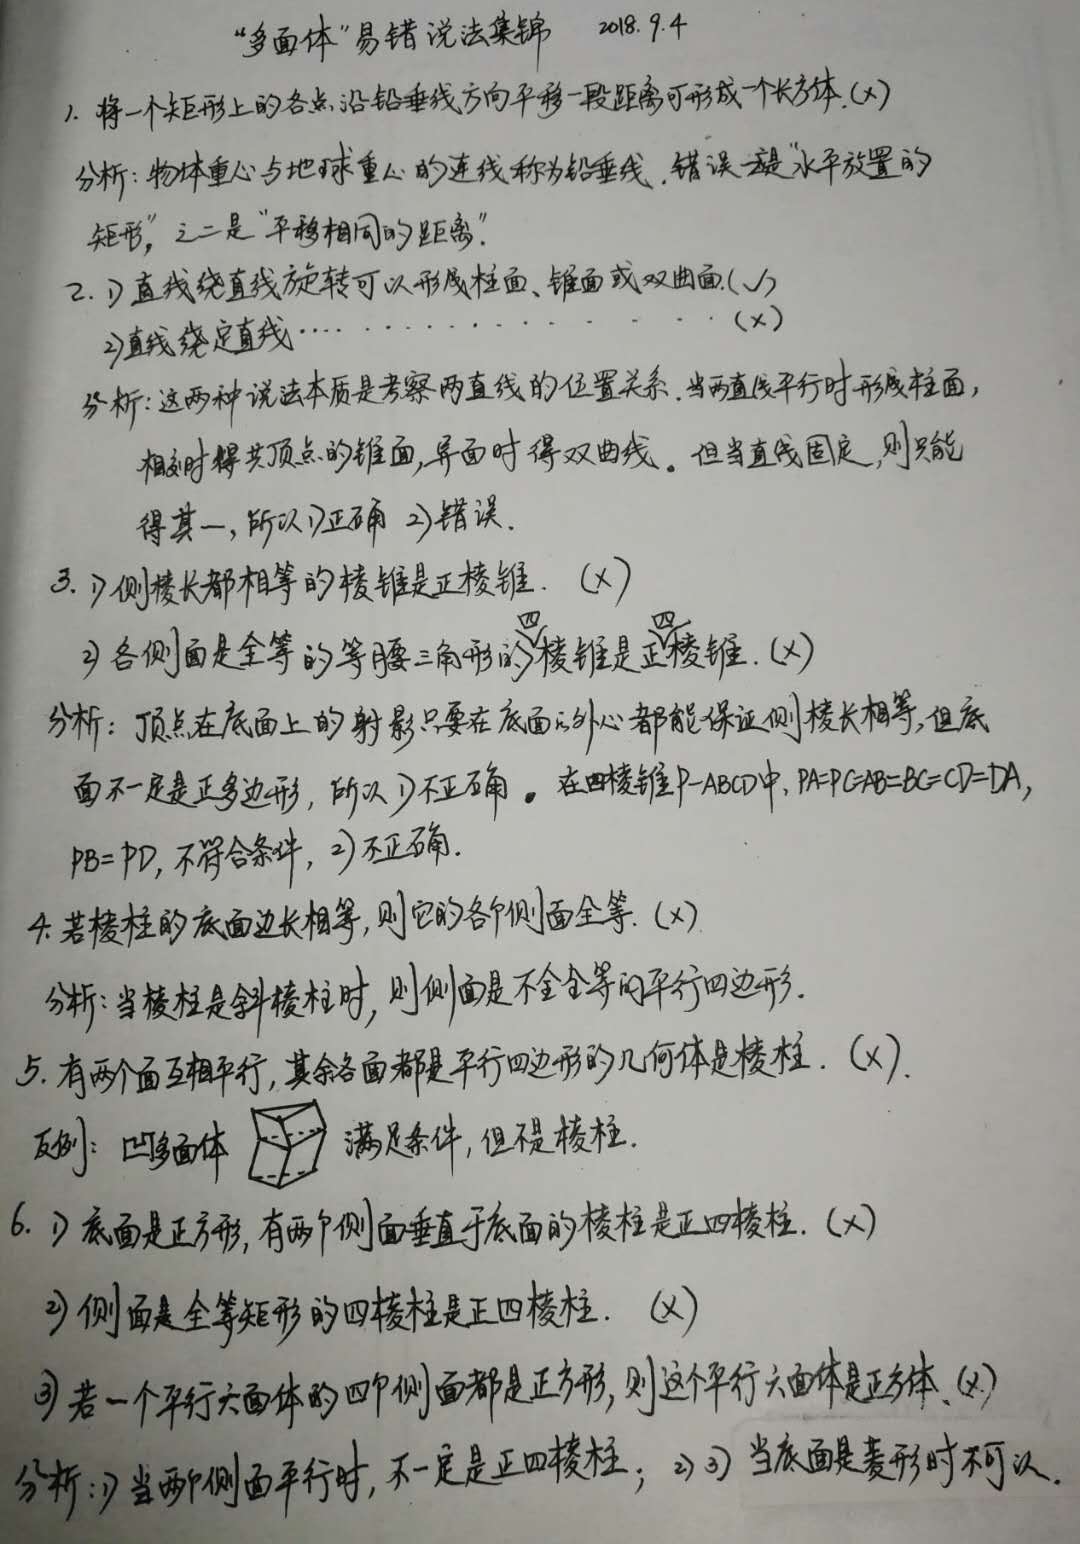 “多面体”易错说法集锦 2018.9.4
1. 将一个矩形上的各点沿铅垂线方向平移一段距离可形成一个长方体.(×)
分析:物体重心与地球重心的连线称为铅垂线.错误一是“水平放置的
矩形”,之二是“平移相同的距离”.
2. 1)直线绕直线旋转可以形成柱面、锥面或双曲面.(√)
2)直线绕定直线…·············(×)
分析:这两种说法本质是考察两直线的位置关系.当两直线平行时形成柱面,
相交时得共顶点的锥面,异面时得双曲线。但当直线固定,则只能
得其一,所以1)正确 2)错误.
3. 1)侧棱长都相等的棱锥是正棱锥. (×)
2)各侧面是全等的等腰三角形的四棱锥是正四棱锥.(×)
分析:顶点在底面上的射影只要在底面的外心都能保证侧棱长相等,但底
面不一定是正多边形,所以1)不正确。在四棱锥P-ABCD中,PA=PC=AB=BC=CD=DA,
PB=PD,不符合条件,2)不正确.
4. 若棱柱的底面边长相等,则它的各个侧面全等.(×)
分析:当棱柱是斜棱柱时,则侧面是不全全等的平行四边形.
5. 有两个面互相平行,其余各面都是平行四边形的几何体是棱柱. (×).
反例: 凹多面体 满足条件,但不是棱柱.
6. 1)底面是正方形,有两个侧面垂直于底面的棱柱是正四棱柱. (×)
2)侧面是全等矩形的四棱柱是正四棱柱. (×)
3)若一个平行六面体的四个侧面都是正方形,则这个平行六面体是正方体.(×)
分析:1)当两个侧面平行时,不一定是正四棱柱; 2)3)当底面是菱形时不可以.